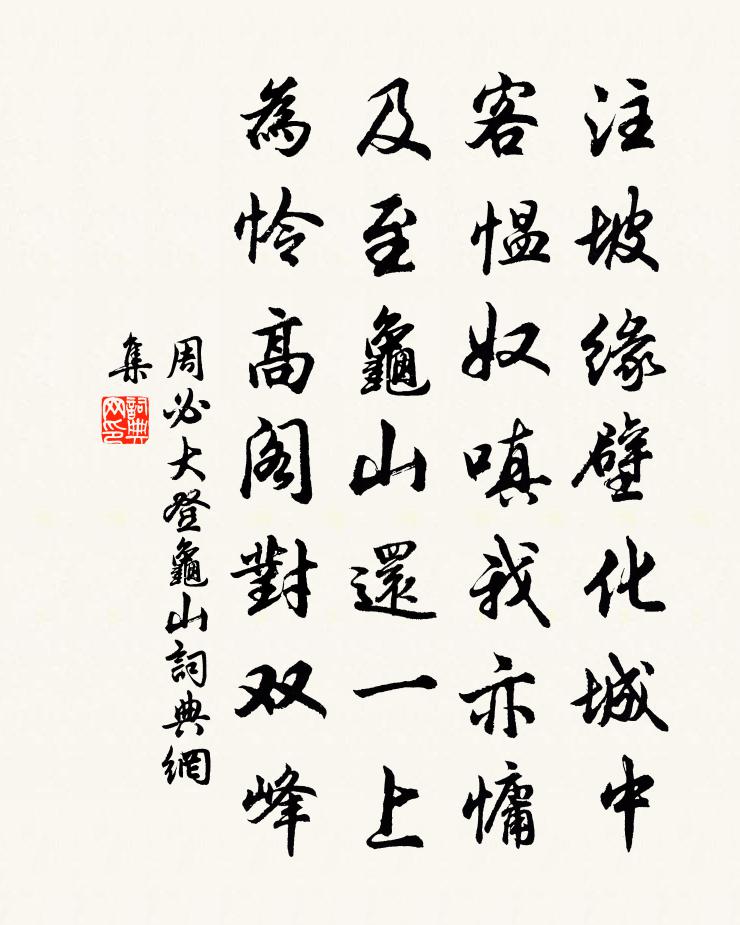 注坡緣壁化城中
客愠奴嗔我亦慵
及至龜山還一上
為怜高阁對双峰
周必大登龜山詞典網
集
詞典网印